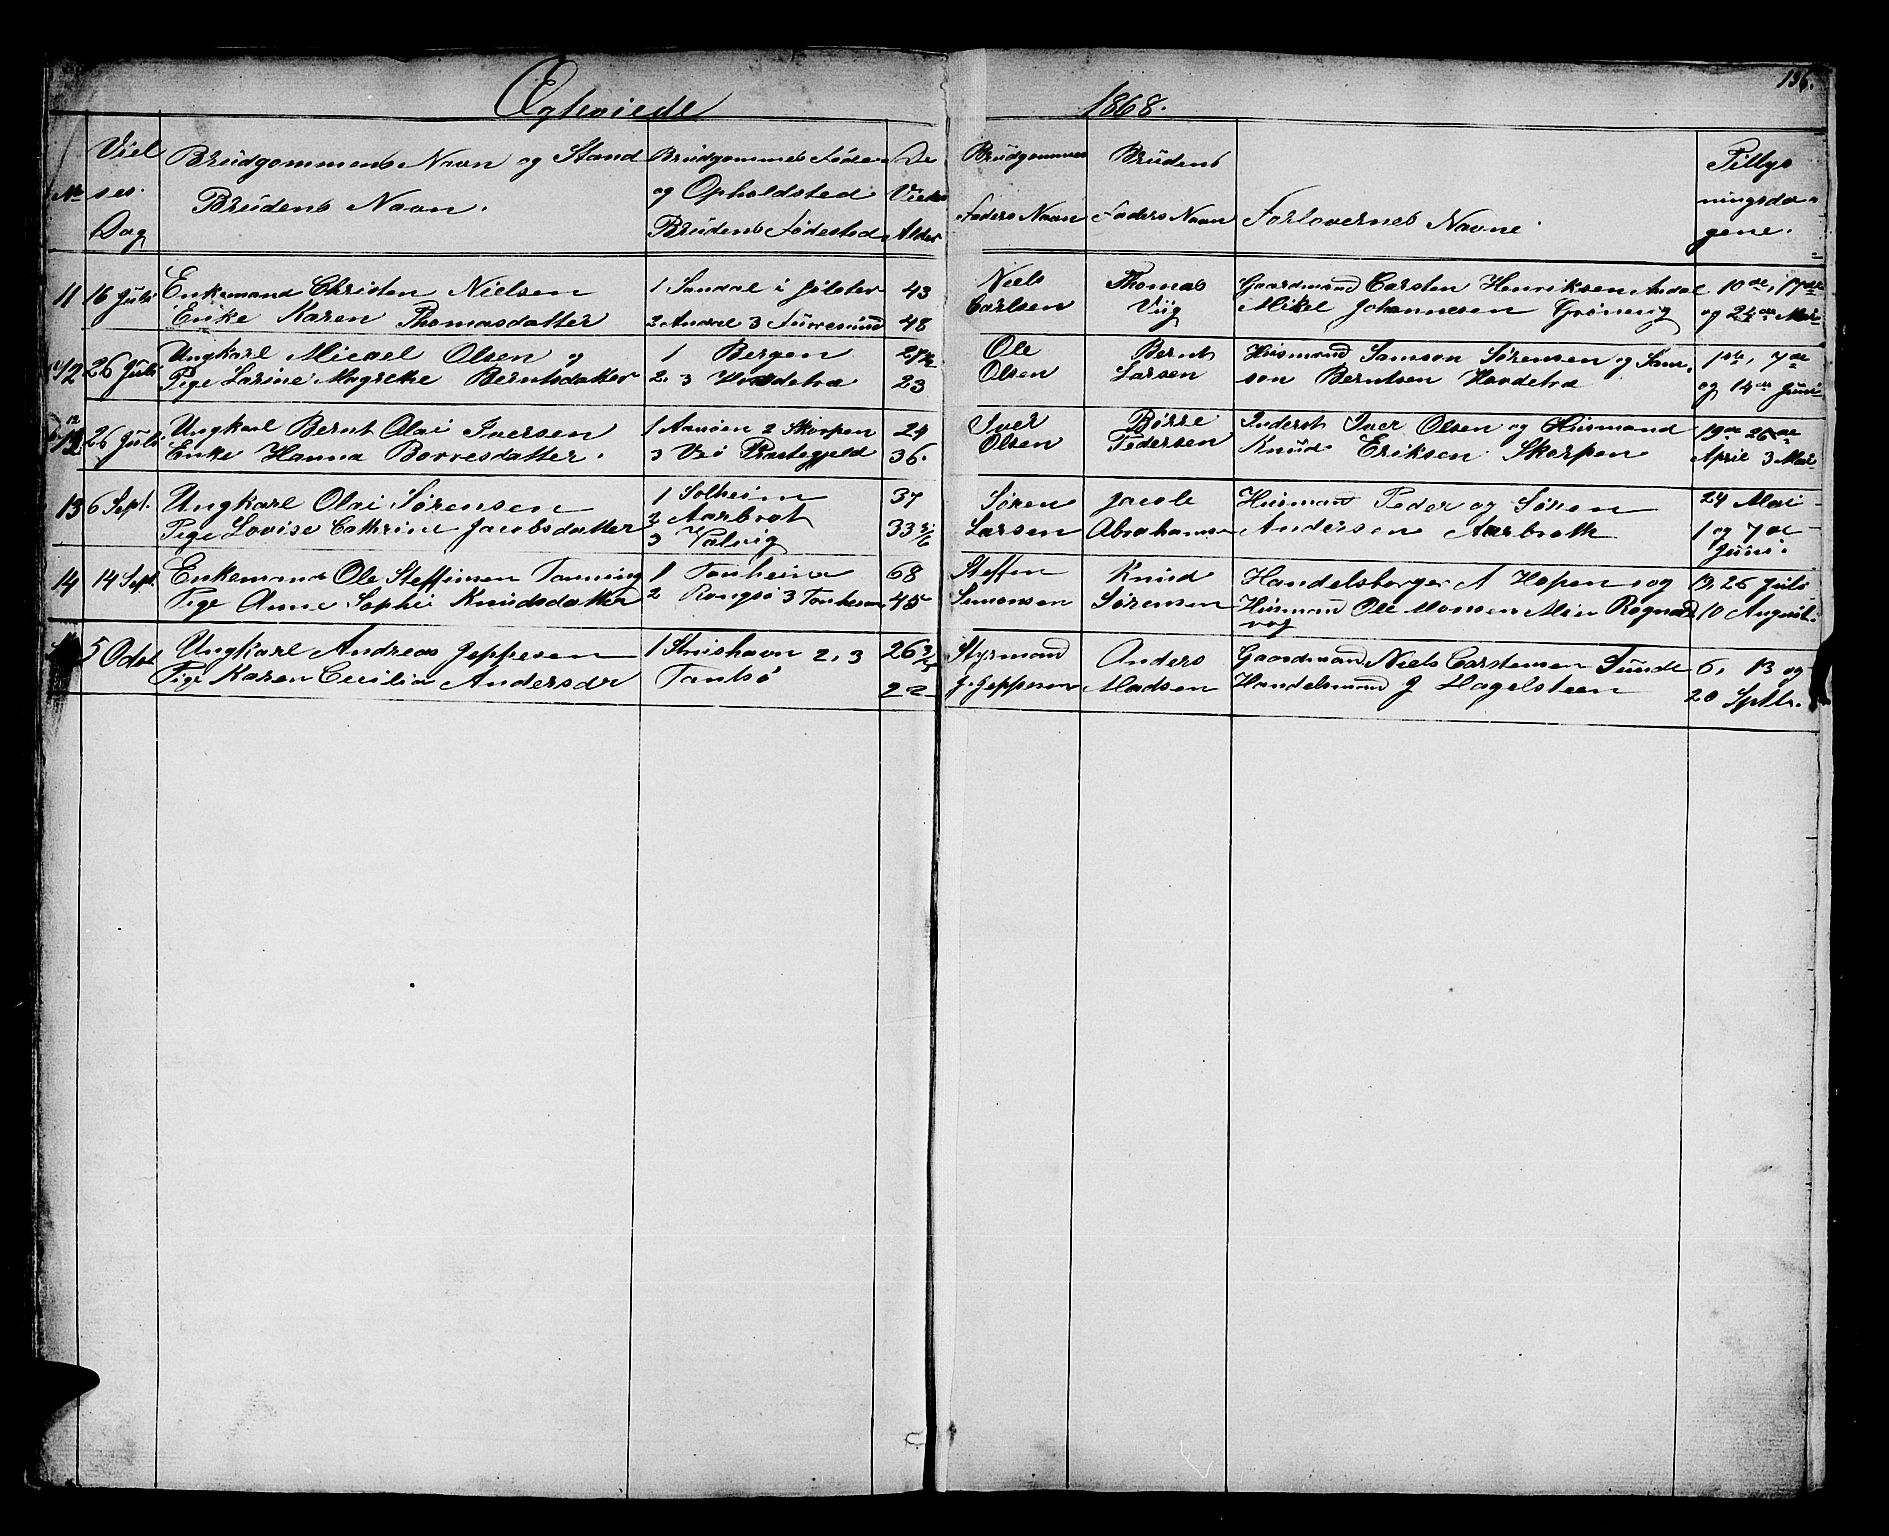 136.
Ægteviede 1868.
No
Viel
ses
Dag
Brudgommens Navn og Stand
Brudens Navn.
Brudgommens Føde
og Opholdsted
Brudens Fødested
De
Viedes
Alder
Brudgommes
Faders Navn
Brudens
Faders Navn
Forlovernes Navne
Tillys
ningsda-
gene.
11 16 Juli Enkemand Christen Nielsen
Enke Karen Thomasdatter
1 Sandal i Jølster
2 Andal 3 Furresund
43
48
Niels
Carlsen
Thomas
Viig
Gaardmand Carsten Henriksen Andal
Mikel Johannesen Grønevig
10de, 17de
og 24de Mai
12 26 Juli Ungkarl Micael Olsen og
Pige Larine Magrethe Berntsdatter
1 Bergen
2. 3 Hovdetræ
27½
23
Ole
Olsen
Bernt
Larsen
Husmand Samson Sørensen og Sam-
son Berntsen Hovdetræ
1ste, 7de
og 14de Juni
12 26 Juli Ungkarl Bernt Olai Iversen
Enke Hanna Borresdatter.
1 Aaraen 2 Skorpen
3 Vei Præstegjeld
24
36.
Iver
Olsen
Børre
Pedersen
Inderst Iver Olsen og Husmand
Knud Eriksen Skorpen
19de 26de
April 3 Mai
13 6 Sept. Ungkarl Olai Sørensen
Pige Lovise Cathrine Jacobsdatter
1 Solheim
2 Aarbrot
3 Valvig
37
33
Søren
Larsen
Jacob
Abrahamsen
Husmand Peder og Søren
Andersen Aarbroth
24 Mai
1 og 7de
Juni.
14 14 Sept. Enkemand Ole Steffensen Tonning
Pige Anne Sophie Knudsdatter
1 Tonheim
2 Rongsø 3 Tonheim
68
45
Steffen
Simonsen
Knud
Sørensen
Handelsborger A Hopen og
Husmand Ole Monsen Rognald
vog
19, 26 Juli
10 August.
5 Octob Ungkarl Andreas Jeppesen
Pige Karen Cecilia Andersdr
1 Knishavn 2, 3
Tansø
26
22
Styrmand
J. Jeppesen
Anders
Madsen
Gaardmand Niels Carstensen Sunde
Handelsmand J Hagelsteen
6, 13 og
20 Sptbr.